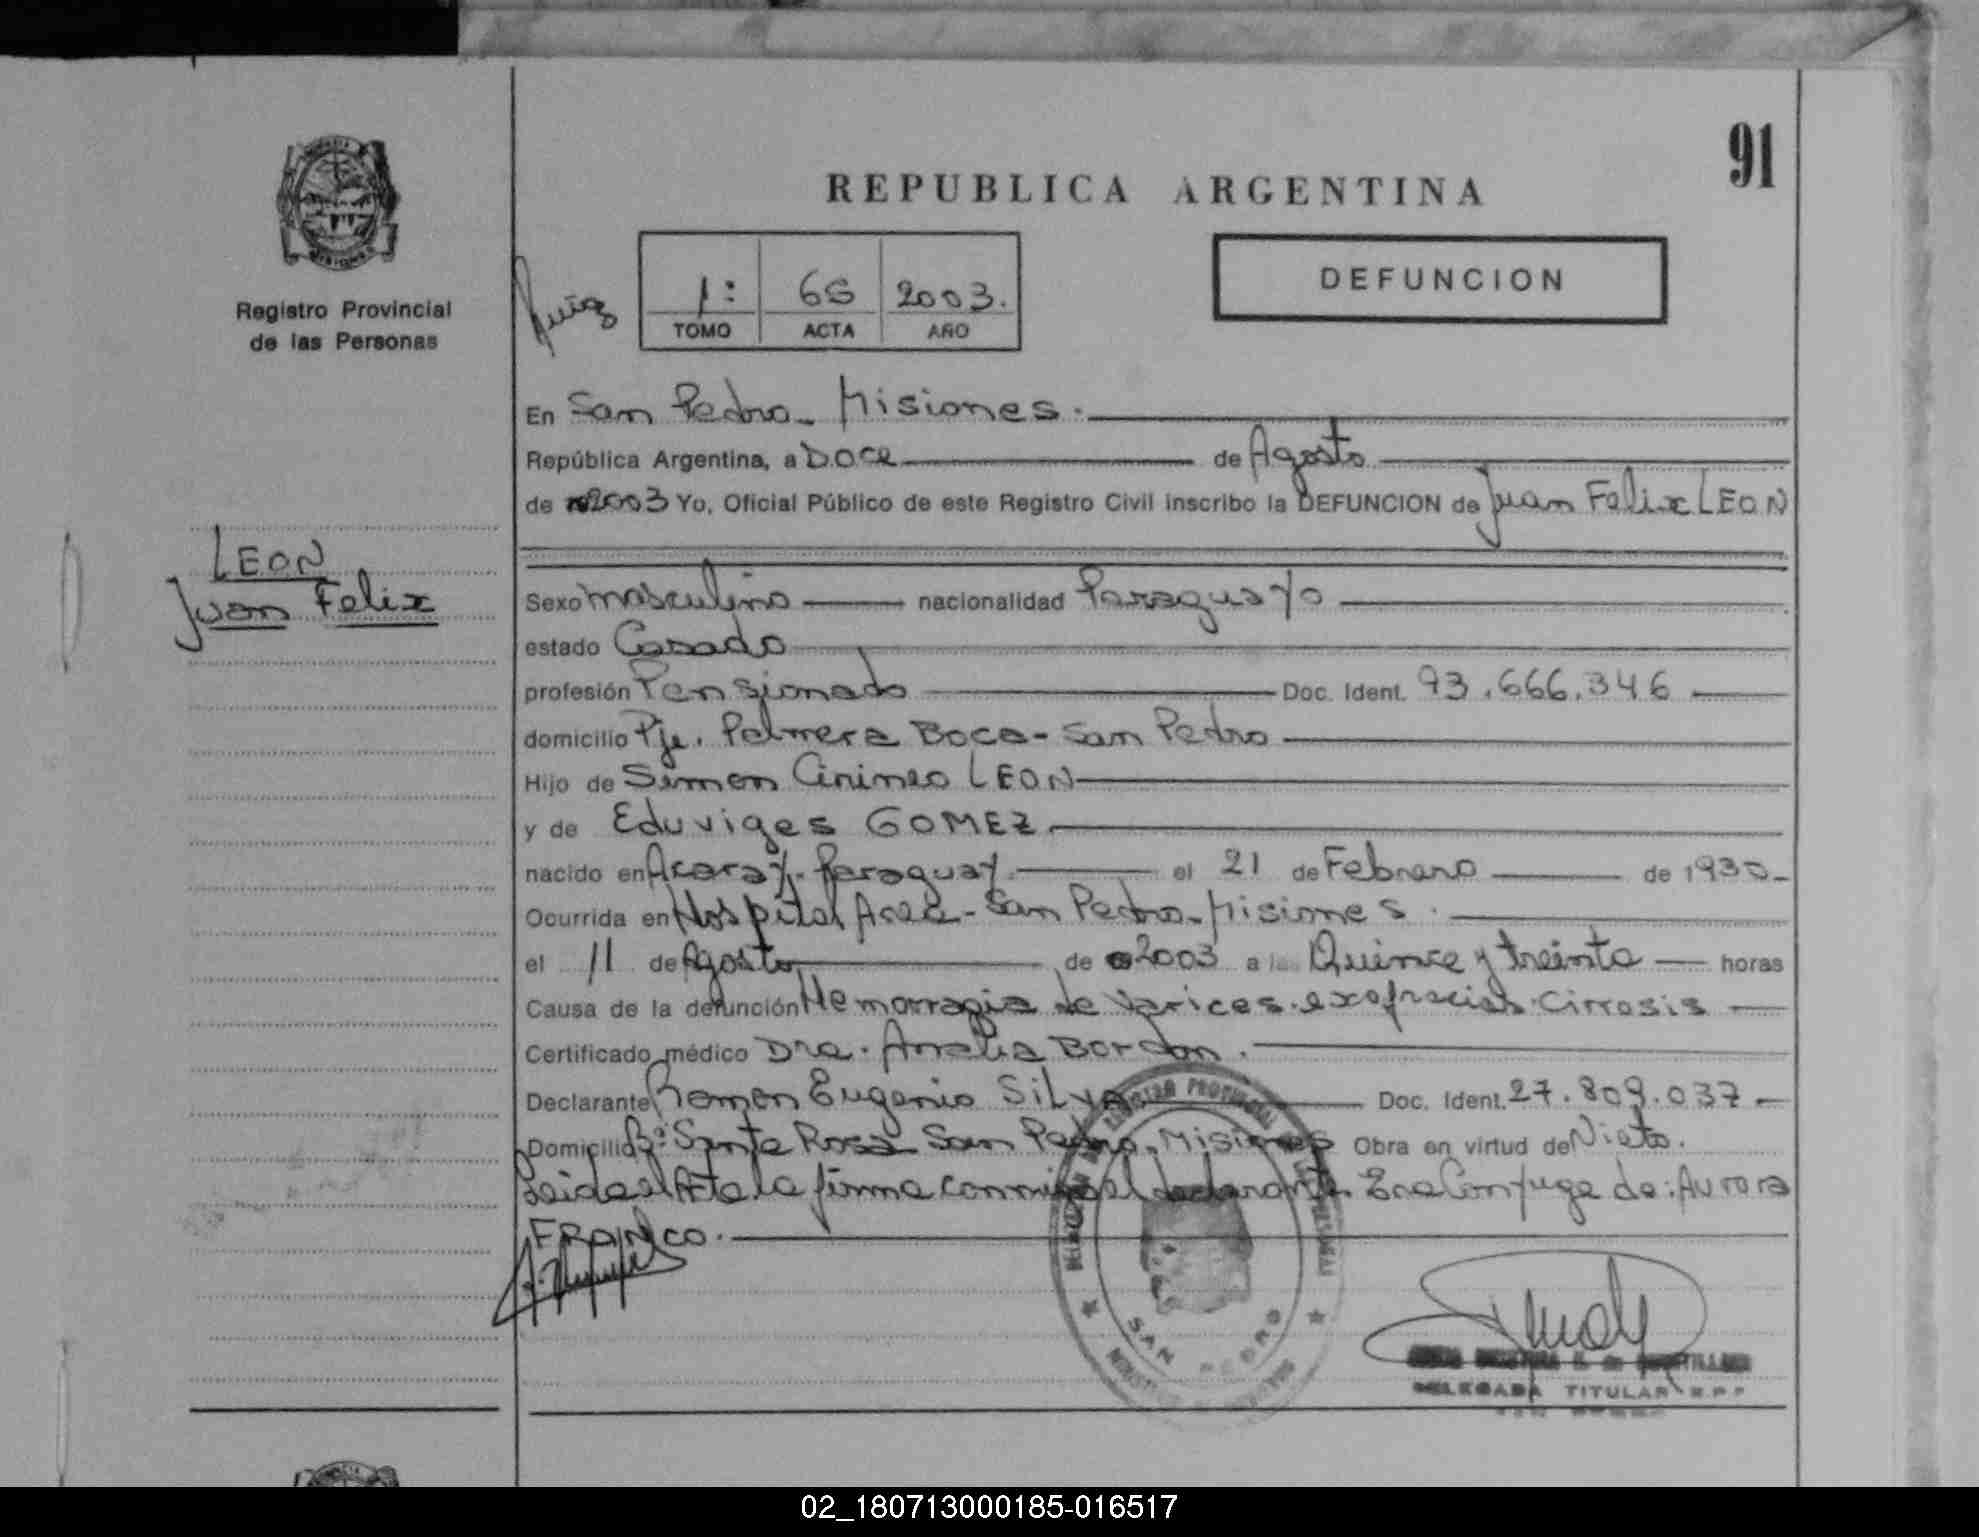 91
REPUBLICA ARGENTINA
1:
65
2003.
TOMO
ACTA
AÑO
DEFUNCION
Registro Provincial
de las Personas
En San Pedro - Misiones.
República Argentina, a Doce de Agosto
de 2003 Yo, Oficial Público de este Registro Civil inscribo la DEFUNCION de Juan Felix LEON
LEON
Juan Felix
Sexo masculino nacionalidad Paraguayo
estado Casado
profesión Pensionado Doc. Ident. 93.666.346
domicilio Pje. Palmera Boca - San Pedro
Hijo de Simon Cirineo LEON
y de Eduviges GOMEZ
nacido en Acaray. Paraguay. el 21 de Febrero de 1930
Ocurrida en Hospital Area - San Pedro - Misiones.
el 11 de Agosto de 2003 a las Quince y treinta horas
Causa de la defunción Hemorragia de varices. Cirrosis
Certificado médico Dra. Analia Bordon.
Declarante Ramon Eugenio Silva Doc. Ident. 27.809.037
Domicilio Bº: Santa Rosa San Pedro - Misiones Obra en virtud de Nieto.
Leida el Acta la firma conmigo el declarante. Era Conyuge de: Aurora
FRANCO.
REGISTRO PROVINCIAL DE LAS PERSONAS
SAN PEDRO
DELEGADA TITULAR R.P.P
02_180713000185-016517